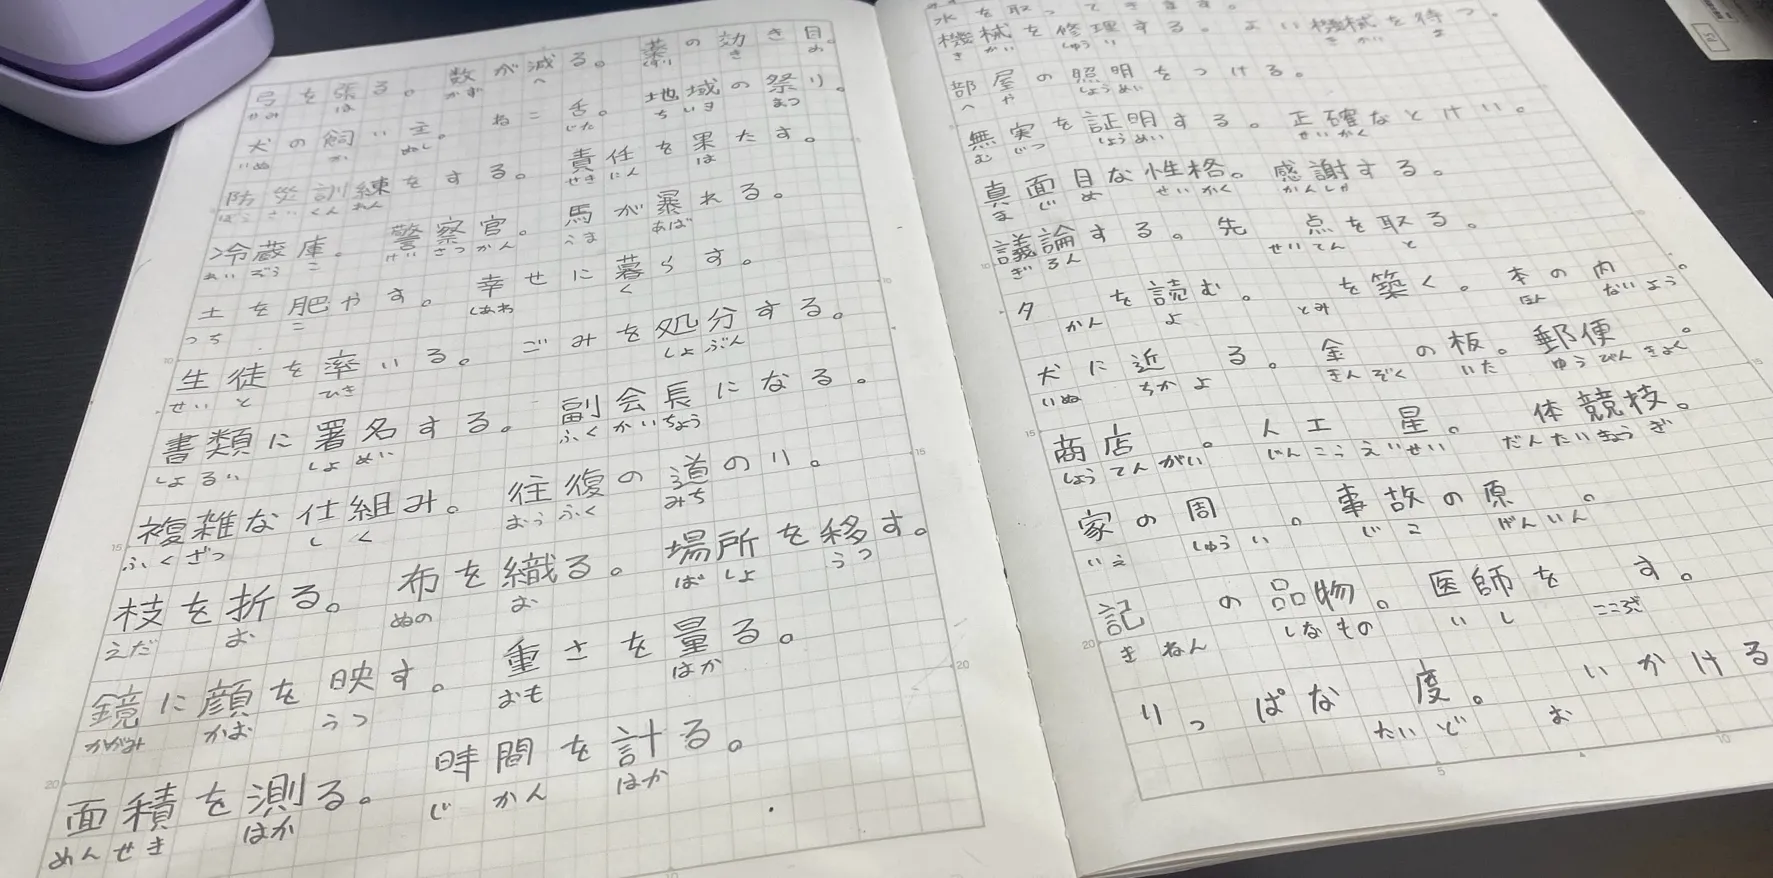 弓を張る。数が減る。薬の効き目。
かみ は かず へ くすり き め
犬の飼い主。ねこ舌。地域の祭り。
いぬ か ぬし じた ちいき まつ
防災訓練をする。責任を果たす。
ぼうさいくんれん せきにん は
冷蔵庫。警察官。馬が暴れる。
れいぞうこ けいさつかん うま あば
土を肥やす。幸せに暮らす。
つち こ しあわ く
生徒を率いる。ごみを処分する。
せいと ひき しょぶん
書類に署名する。副会長になる。
しょるい しょめい ふくかいちょう
複雑な仕組み。往復の道のり。
ふくざつ しく おうふく みち
枝を折る。布を織る。場所を移す。
えだ お ぬの お ばしょ うつ
鏡に顔を映す。重さを量る。
かがみ かお うつ おも はか
面積を測る。時間を計る。
めんせき はか じかん はか
水を取ってきます。
機械を修理する。よい機械を待つ。
きかい しゅうり きかい ま
部屋の照明をつける。
へや しょうめい
無実を証明する。正確なとけい。
むじつ しょうめい せいかく
真面目な性格。感謝する。
まじめ せいかく かんしゃ
議論する。先 点を取る。
ぎろん せいてん と
夕 を読む。 を築く。本の内 。
かん よ とみ ほん ないよう
犬に近 る。金 の板。郵便 。
いぬ ちかよ きんぞく いた ゆうびんきょく
商店 。人工 星。 体競技。
しょうてんがい じんこうえいせい だんたいきょうぎ
家の周 。事故の原 。
いえ しゅうい じこ げんいん
記 の品物。医師を す。
きねん しなもの いし こころざ
りっぱな 度。 いかける
たいど お